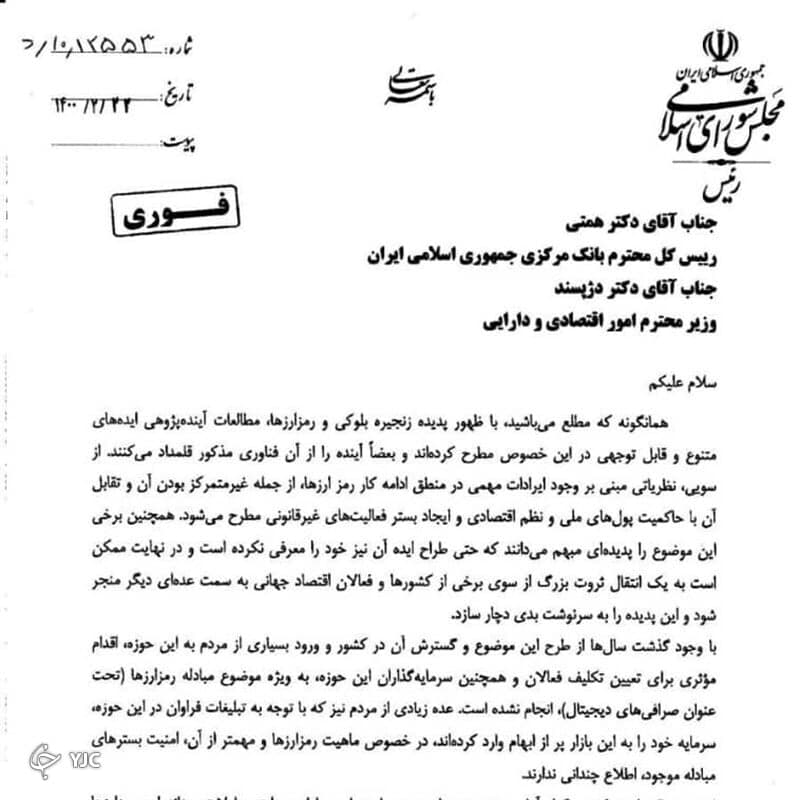 جمهوری اسلامی ایران
مجلس شورای اسلامی
رئیس
باسمه تعالی
شماره: ۱۰,۱۲۵۵۳/د
تاریخ: ۱۴۰۰/۲/۲۲
پیوست:
فـوری
جناب آقای دکتر همتی
رییس کل محترم بانک مرکزی جمهوری اسلامی ایران
جناب آقای دکتر دژپسند
وزیر محترم امور اقتصادی و دارایی
سلام علیکم
همانگونه که مطلع می‌باشید، با ظهور پدیده زنجیره بلوکی و رمزارزها، مطالعات آینده‌پژوهی ایده‌های
متنوع و قابل توجهی در این خصوص مطرح کرده‌اند و بعضاً آینده را از آن فناوری مذکور قلمداد می‌کنند. از
سویی، نظریاتی مبنی بر وجود ایرادات مهمی در منطق ادامه کار رمز ارزها، از جمله غیرمتمرکز بودن آن و تقابل
آن با حاکمیت پول‌های ملی و نظم اقتصادی و ایجاد بستر فعالیت‌های غیرقانونی مطرح می‌شود. همچنین برخی
این موضوع را پدیده‌ای مبهم می‌دانند که حتی طراح ایده آن نیز خود را معرفی نکرده است و در نهایت ممکن
است به یک انتقال ثروت بزرگ از سوی برخی از کشورها و فعالان اقتصاد جهانی به سمت عده‌ای دیگر منجر
شود و این پدیده را به سرنوشت بدی دچار سازد.
با وجود گذشت سال‌ها از طرح این موضوع و گسترش آن در کشور و ورود بسیاری از مردم به این حوزه، اقدام
مؤثری برای تعیین تکلیف فعالان و همچنین سرمایه‌گذاران این حوزه، به ویژه موضوع مبادله رمزارزها (تحت
عنوان صرافی‌های دیجیتال)، انجام نشده است. عده زیادی از مردم نیز که با توجه به تبلیغات فراوان در این حوزه،
سرمایه خود را به این بازار پر از ابهام وارد کرده‌اند، در خصوص ماهیت رمزارزها و مهمتر از آن، امنیت بسترهای
مبادله موجود، اطلاع چندانی ندارند.
YJC